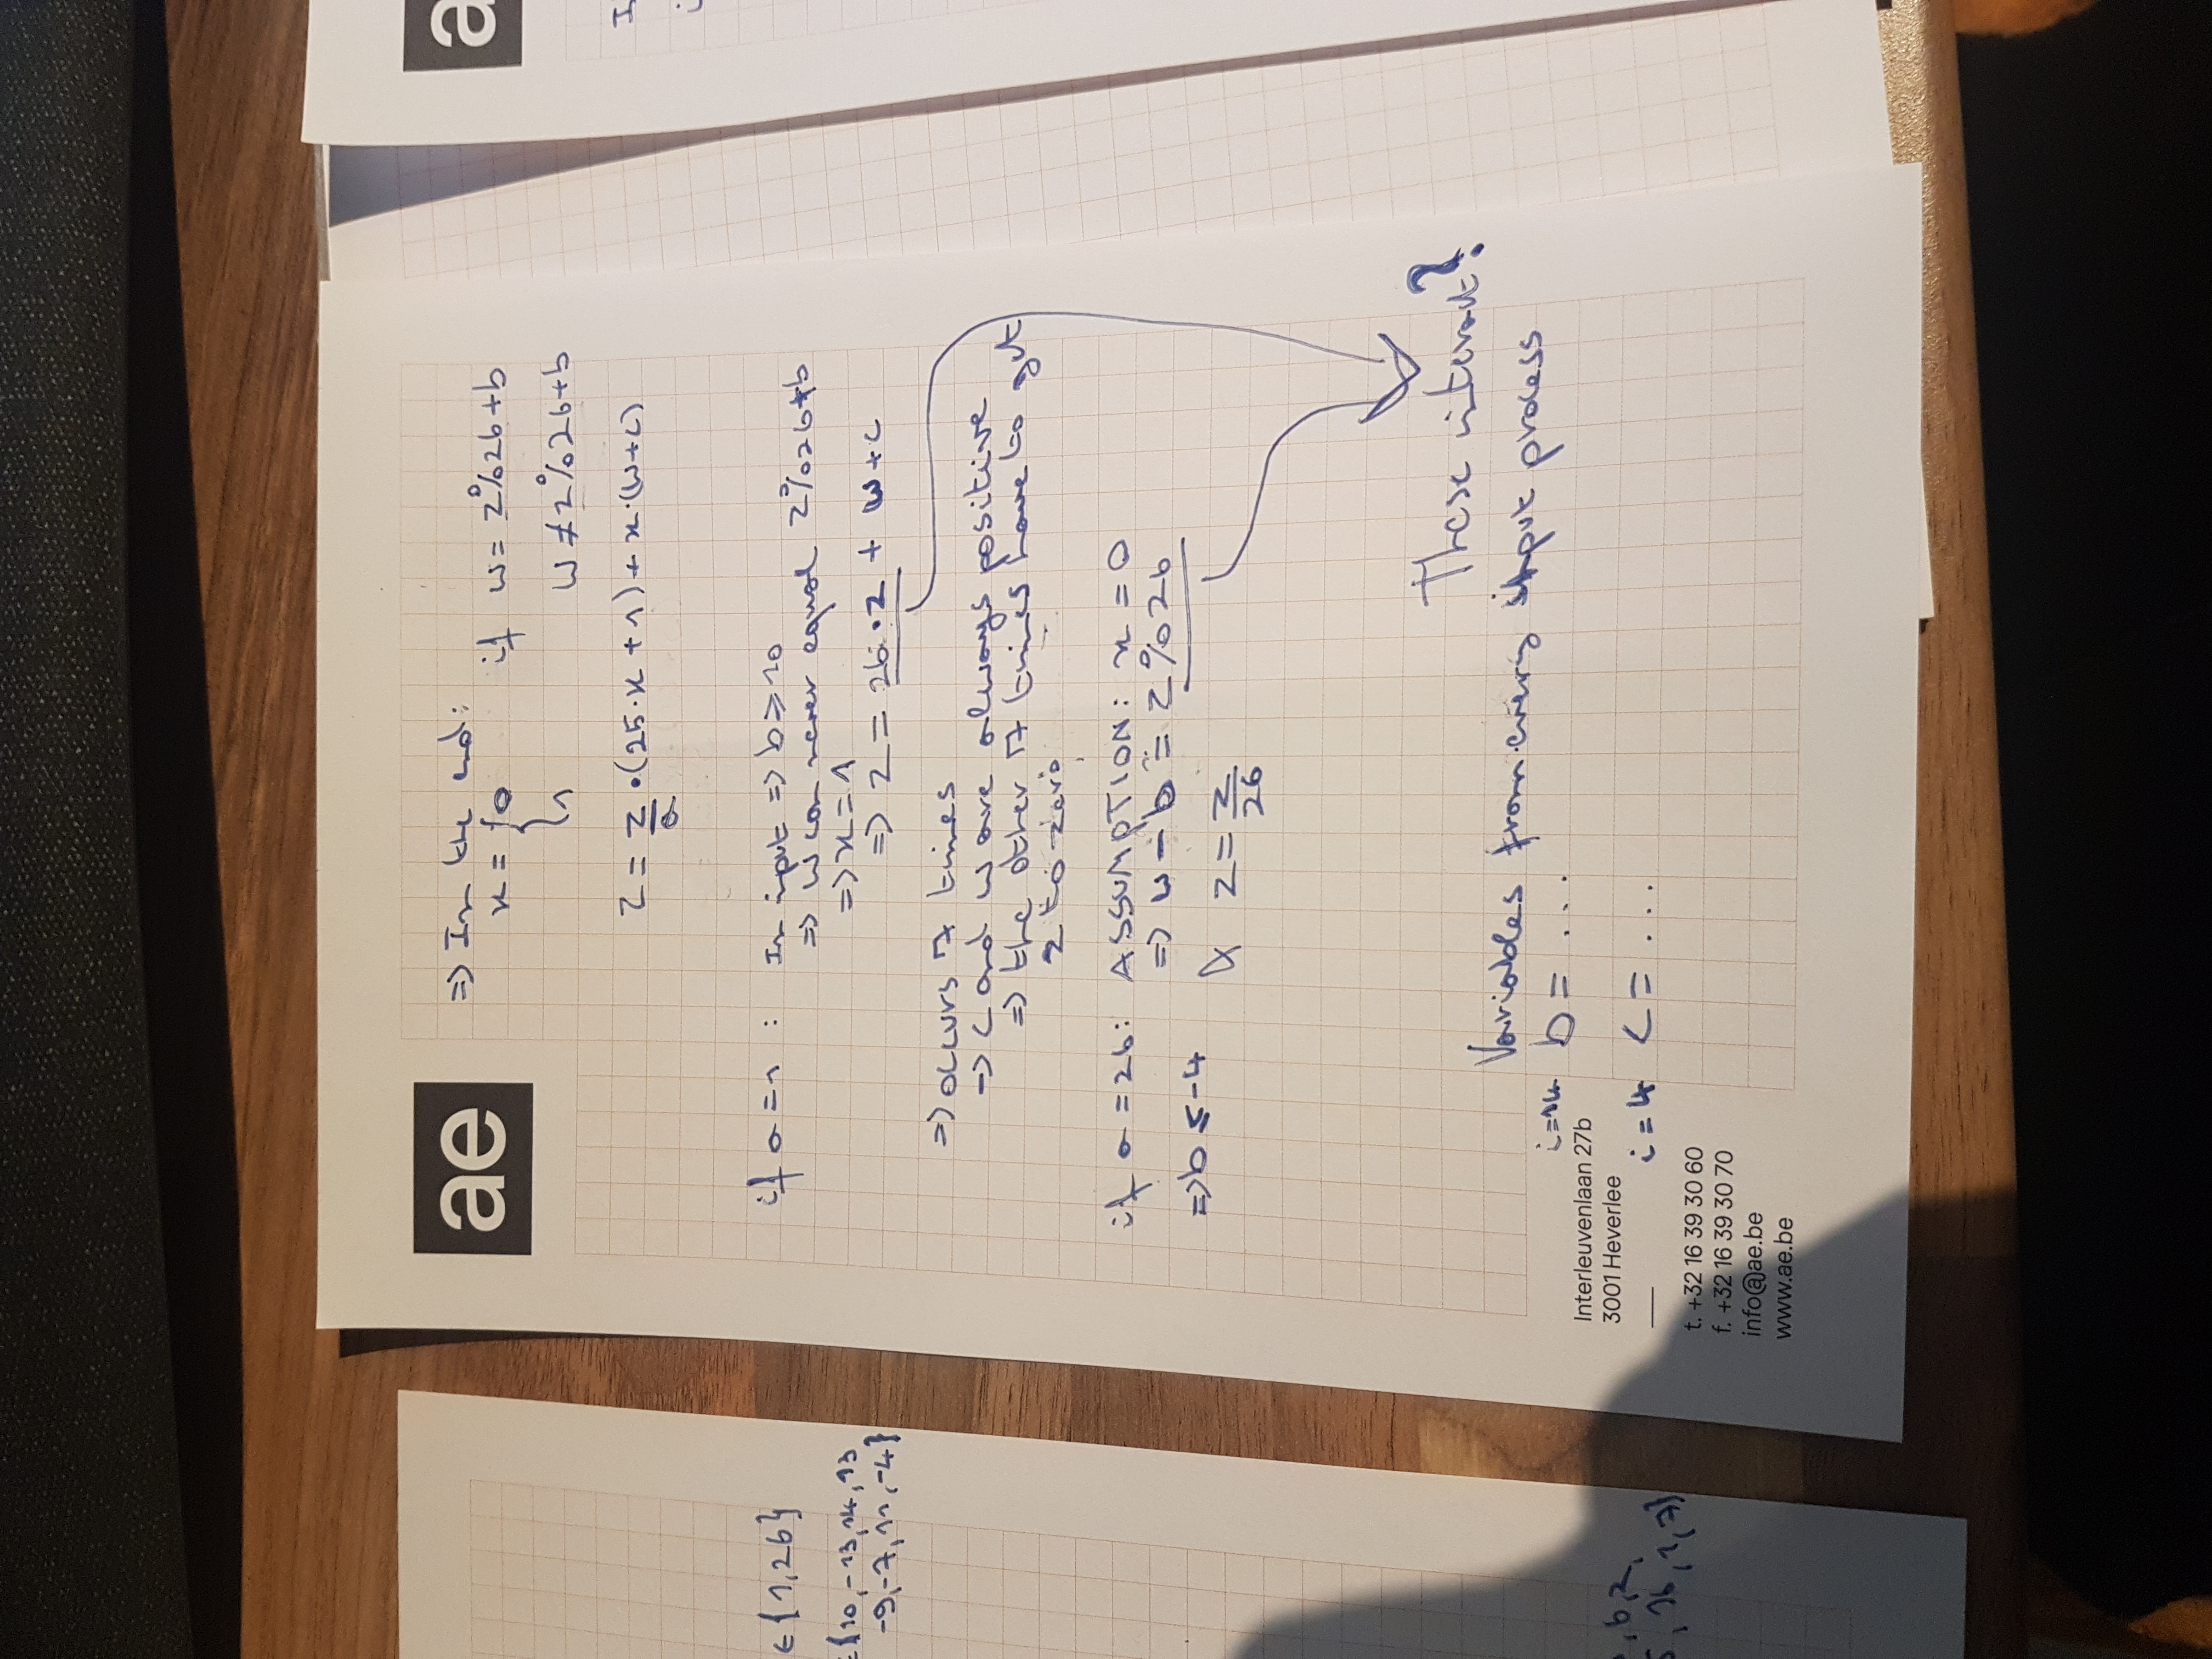 ae
=> In the end:
x = { 0 if w = z%26+b
1 w ≠ z%26+b
z = z/a • (25·x + 1) + x·(w+c)
if a = 1 : In input => b ≥ 10
=> w can never equal z%26+b
=> x = 1
=> z = 26·z + w+c
=> occurs 7 times
-> c and w are always positive
=> the other 7 times have to get
z to zero
if a = 26: ASSUMPTION: x = 0
=> w - b = z%26
=> b ≤ -4
& z = z/26
These interact?
Variables from every input process
i=14 b = ...
i=4 c = ...
Interleuvenlaan 27b
3001 Heverlee
t. +32 16 39 30 60
f. +32 16 39 30 70
info@ae.be
www.ae.be
∈ {1,26}
∈{10,-13,14,13
-9,-7,11,-4}
,6,2,
5, 16, 1, 7}
a
I